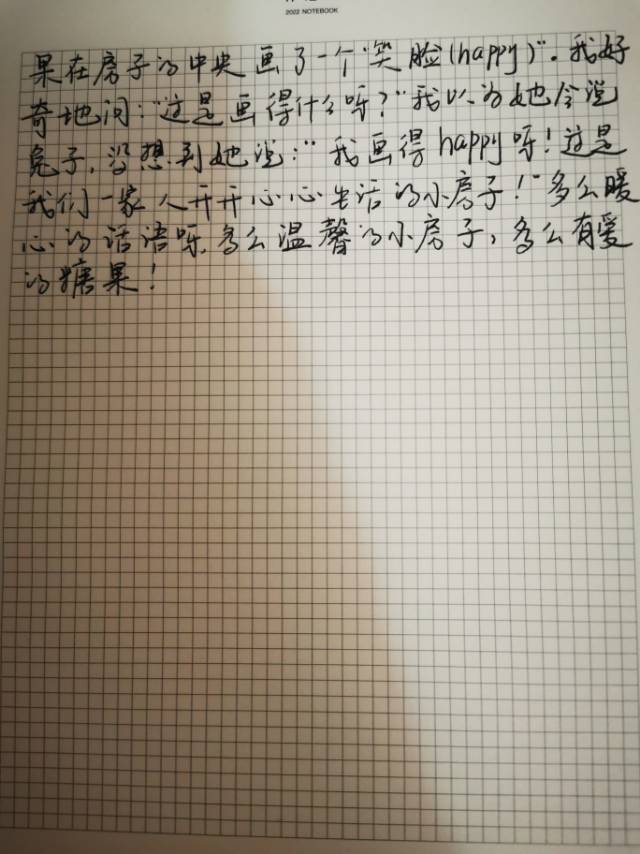 2022 NOTEBOOK
果在房子的中央画了一个“笑脸(happy)”. 我好
奇地问:“这是画得什么呀?”我以为她会说
兔子,没想到她说:“我画得happy呀!这是
我们一家人开开心心生活的小房子!”多么暖
心的话语呀,多么温馨的小房子,多么有爱
的糖果!